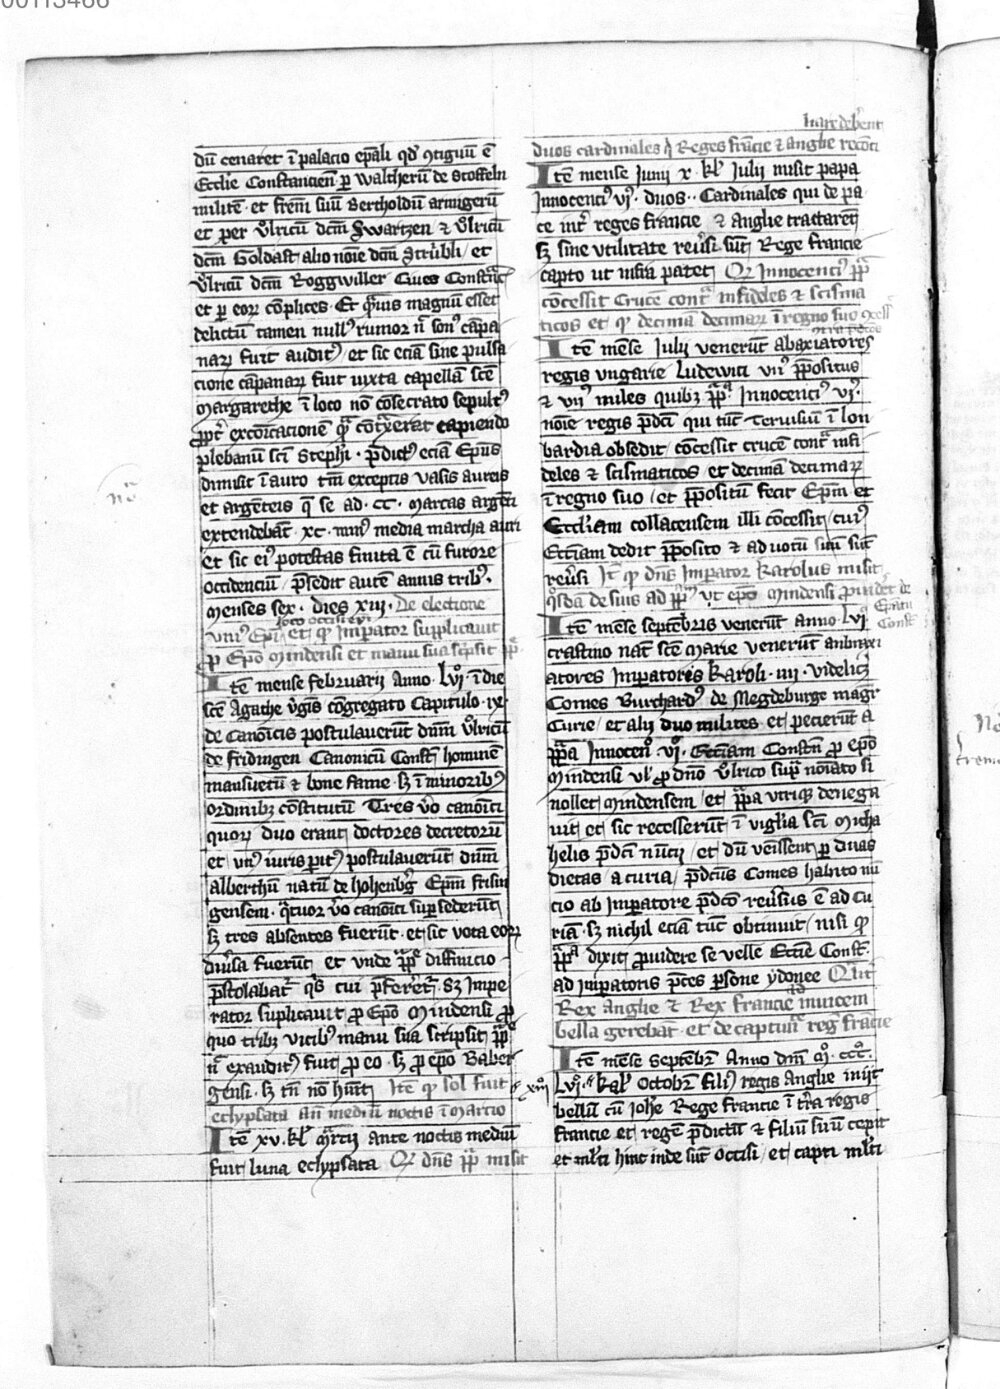 00113466
dum cenaret ī palacio ep̄ali qd' ꝯtiguū ē
Ecclie Constancien̄ ꝑ Waltherū de Stoffeln
militē et frēm suū Bertholdū armigerū
et per Ůlricū dcm̄ Swartzen ⁊ Ůlricū
dcm̄ Goldast alio noīe dcm̄ Strúbli / et
Ůlricū dcm̄ Roggwiller Ciues Constāc̄
et ꝑ eoꝝ cōplices · Et qͣuis magnū esset
delictū tamen nullꝰ rumor nͨ sonꝰ cāpa
naꝝ fuit auditꝰ / et sic eciā sine pulsa
cione cāpanaꝝ fuit iuxta capellā scē
Margarethe ī loco nō cōsecrato sepultꝰ
ꝓpt̄ excōicacionē qͣ cōtͣxerat capiendo
plebanū scī Steph̄i · p̄dictꝰ eciā Ep̄us
dimisit ī auro tm̄ exceptis vasis aureis
et argēteis q̄ se ad · CC · marcas argēti
extendebāt · xc · media marcha auri
et sic eiꝰ potestas finita ē cū furore
occidenciū / p̄sedit autē annis tribꝰ ·
menses sex · dies xiij · De electione
vniꝰ Ep̄i et qͦ Imꝑator supplicauit
ꝓ Ep̄o Mindensi et manu sua sc̄psit pp̄e
Itē mense februarij Anno · Lvjͦ · ī die
scē Agathe v̄gis cōgregato Capitulo · ix ·
de Canōicis postulauerūt dnm̄ Ůlricū
de fridingen Canonicū Const̄ hominē
mansuetū ⁊ bone fame sꝫ ī minoribꝰ
ordinibꝫ cōstitutū Tres v̊o canōici
quoꝝ duo erant doctores decretorū
et vnꝰ iuris ꝑitꝰ postulauerūt dnm̄
Alberthū natū de hohenb̄g Ep̄m frisin
gensem · qͣtuor v̊o canōici suꝑsederūt
sꝫ tres absentes fuerūt · et sic vota eoꝝ
diūsa fuerūt et vnde pp̄e diffinicio
p̄stolabat᷑ qͥs cui p̄feret᷑ · Sꝫ Impe
rator suplicauit ꝓ Ep̄o Mindensi ꝓ
quo tribꝫ vicibꝰ manu sua scripsit pp̄e
nͨ exauditꝰ fuit ꝓ eo · sꝫ ꝓ ep̄o Baber
gensi · sꝫ tn̄ nō hūit Itē qͦ sol fuit
eclypsata añ mediū noctis ī Marcio
Itē xv · kl̄ Mr̄cij ante noctis mediū
fuit luna eclypsata Qͦ dn̄s pp̄ misit
duos cardinales qͥ Reges francie ⁊ anglie recōci
liare deberent
Itē mense Junij x · kl̄ Julij misit papa
Innocenciꝰ vjꝰ · duos · · Cardinales qui de pa
ce int̄ reges francie ⁊ Anglie tractarent
sꝫ sine vtilitate reūsi sūt Rege francie
capto ut infra patet Qͦ Innocenciꝰ pp̄
cōcessit Crucē contͣ infideles ⁊ scisma
ticos et qͦ decimā decimaꝝ ī regno suo ꝯcess̄
Itē mēse Julij venerūt abaxiatores
regis vngarie Ludewici vnꝰ p̄positus
⁊ vnꝰ miles quibꝫ pp̄a Innocenciꝰ vjꝰ ·
noīe regis p̄dci qui tūc Teruisiū ī lon
bardia obsedit / cōcessit crucē contͣ infi
deles ⁊ scismaticos et decimā decimaꝝ
ī regno suo / et p̄positū fecit Ep̄m et
Eccliam collacensem illi cōcessit / cuiꝰ
Eccliam dedit p̄posito ⁊ ad uotū suū sūt
reūsi Itē qͦ dn̄s Imꝑator Karolus misit
qͦsdā de suis ad pp̄m vt ep̄o Mindensi ꝓuidet de
Ep̄atu
Const̄
Itē mēse septembris venerūt anno Lvjͦ
crastino nat̄ scē Marie venerūt anbaxi
atores Imperatoris Karoli · iiij · videlicꝫ
Comes Burchardꝰ de Megdeburge magr̄
Curie / et alij duo milites et pecierūt a
pp̄a Innocen̄ vjͦ · Eccliam Constn̄ ꝓ ep̄o
Mindensi vl' ꝓ dn̄o Ůlrico supͣ noīato si
nollet Mindensem / et pp̄a vtriqꝫ denega
uit / et sic recesserūt ī vigilia scī Micha
helis p̄dci nūcij / et dū veīssent ꝑ duas
dietas a curia / p̄dcūs Comes habito nū
cio ab Imꝑatore p̄dco reūsus ē ad cu
riā · sꝫ nichil eciā tūc obtinuit / nisi qͦ
pp̄a dixit ꝓuidere se velle Eccie Const̄ ·
ad Imꝑatoris p̄ces ꝑsone ydonee Qͣlit̄
Rex Anglie ⁊ Rex francie inuicem
bella gerebāt · et de captiuit̄ reḡ francie
Itē mēse Septembr̄ Anno dn̄i Mͦ · CCCͦ ·
Lvjͦ · xiijͦ kal̄ Octobr̄ filiꝰ regis Anglie inijt
bellū cū Johe Rege francie ī t̄ra regis
francie et regē p̄dictū ⁊ filiū suū cepit
et ml̄ti hinc inde sūt occisi / et capti ml̄ti